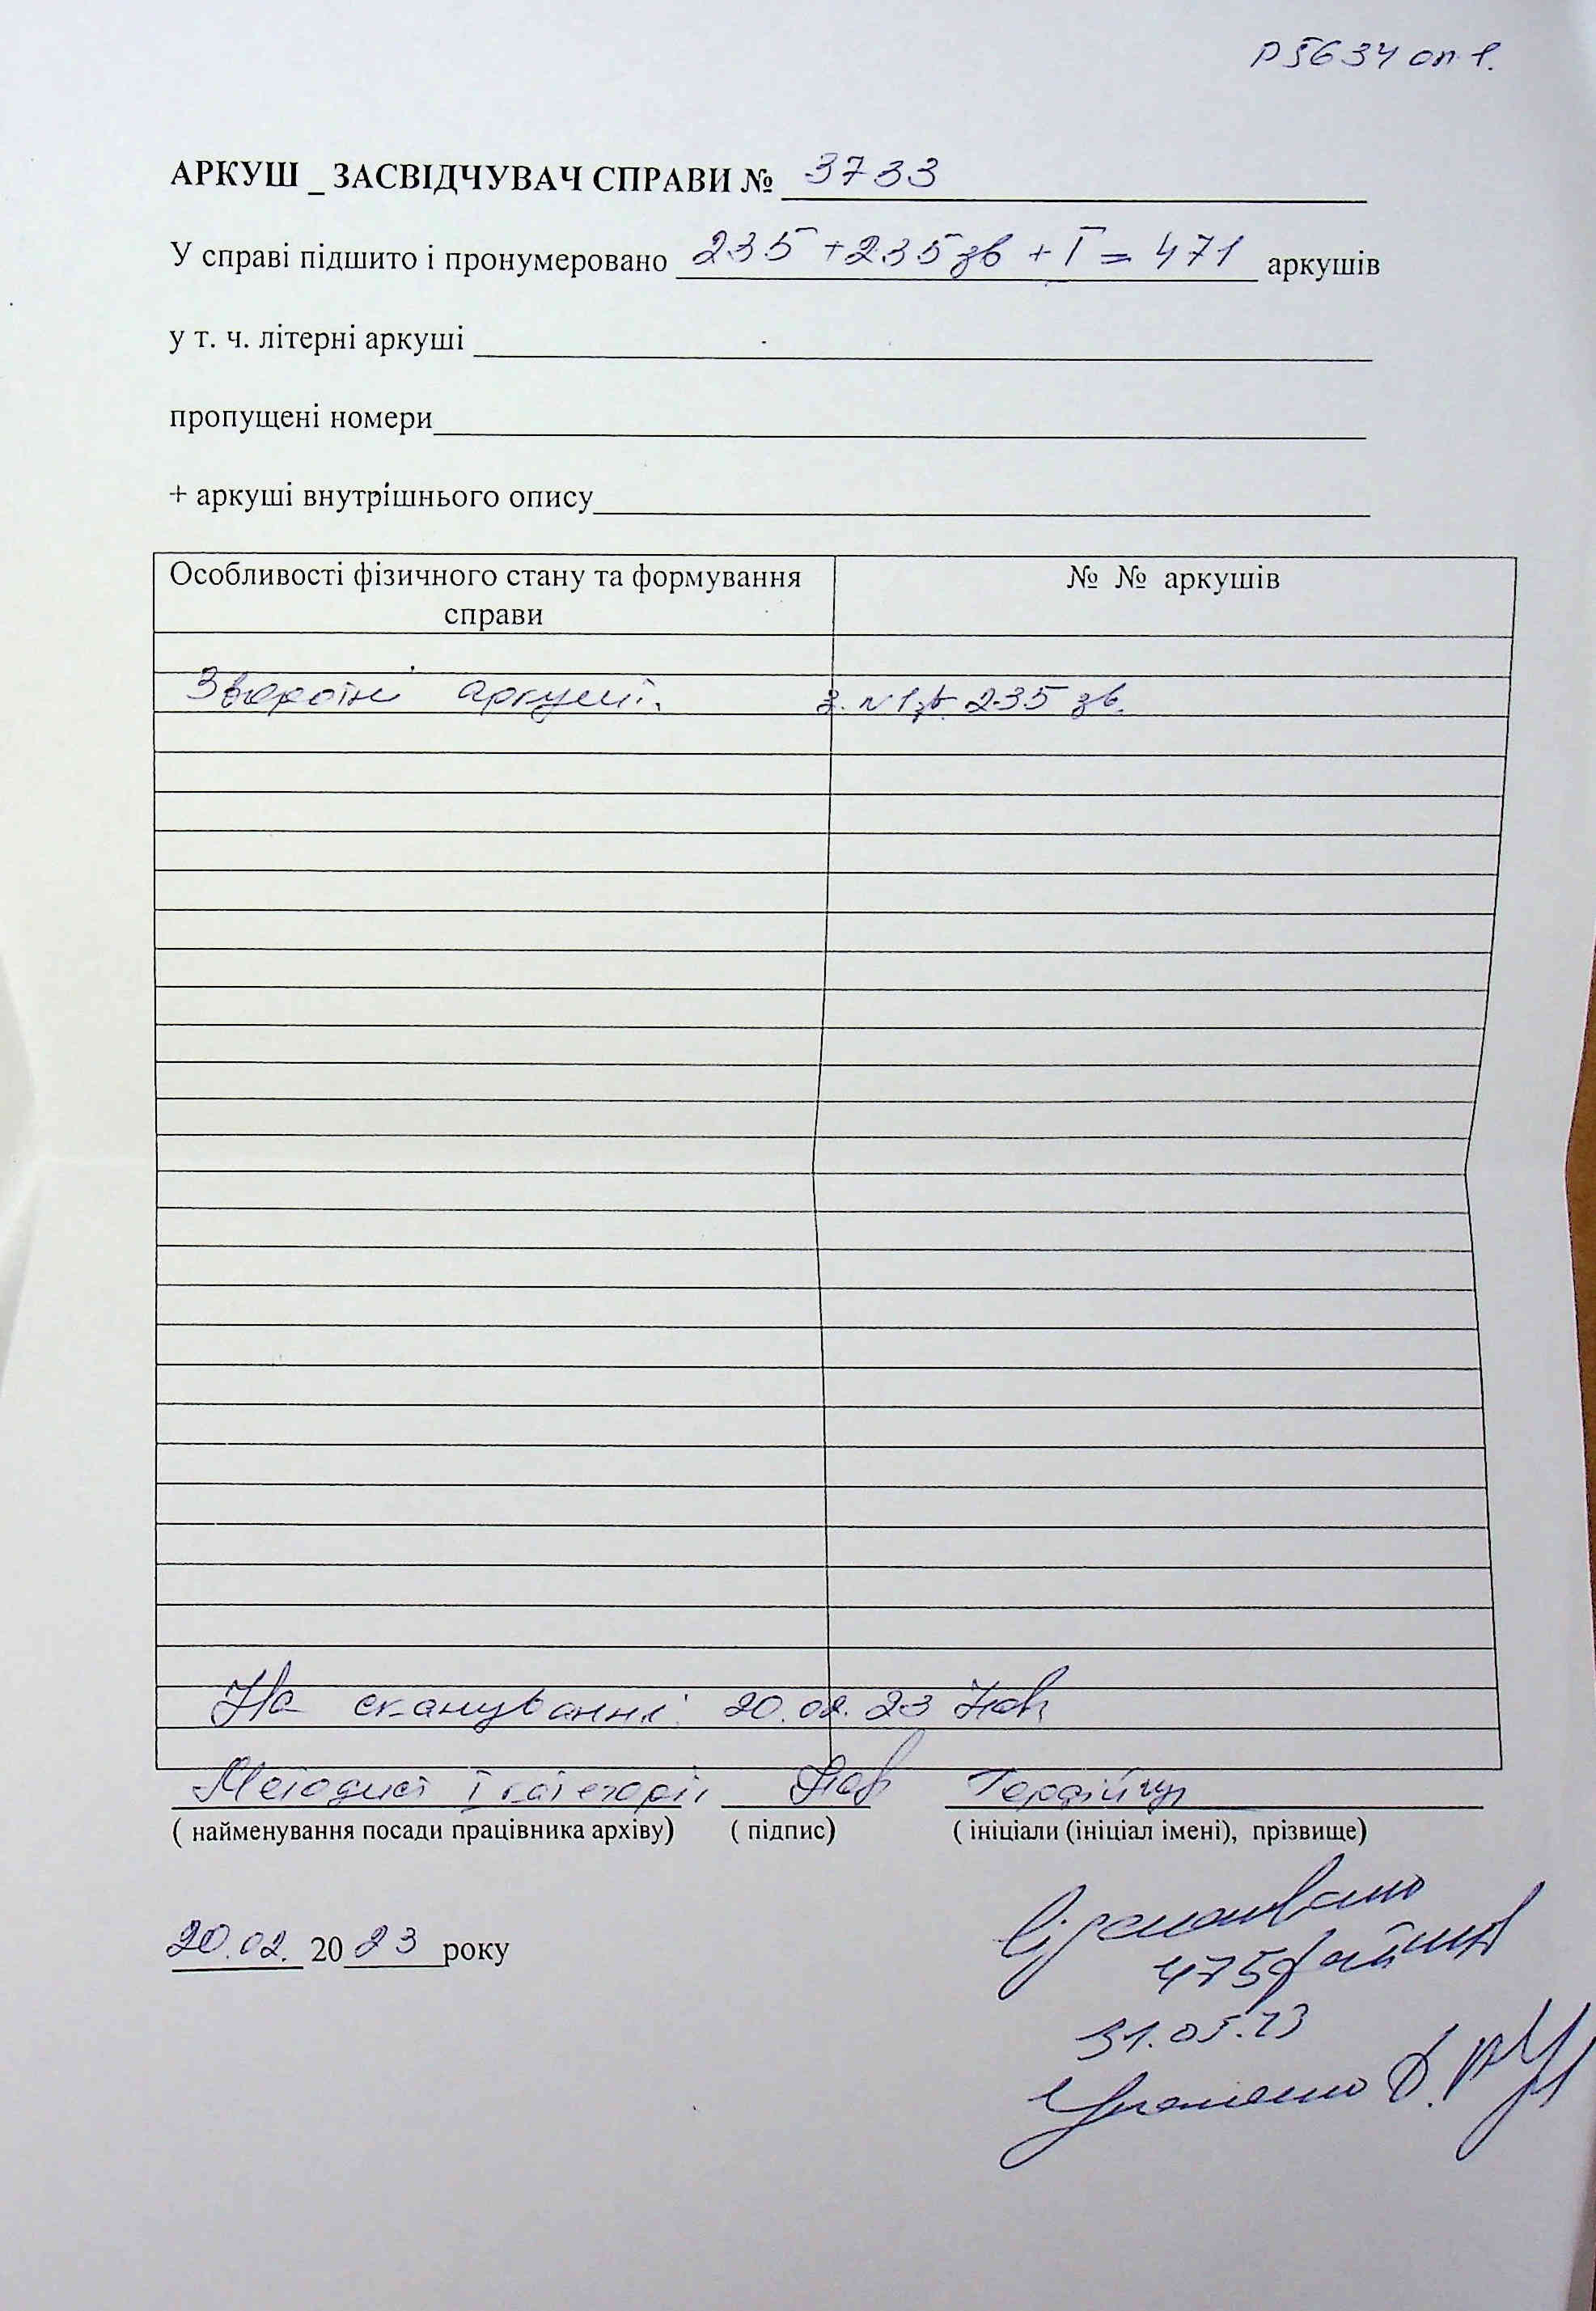 Р5634 оп 1.
АРКУШ _ ЗАСВІДЧУВАЧ СПРАВИ № 3733
У справі підшито і пронумеровано 235 + 235 зв + I = 471 аркушів
у т. ч. літерні аркуші
пропущені номери
+ аркуші внутрішнього опису
Особливості фізичного стану та формування справи
№ № аркушів
Зворотні аркуші. з. №1зв. 235 зв.
На сканування: 20.02.23
Методист I категорії
( найменування посади працівника архіву) ( підпис) ( ініціали (ініціал імені), прізвище)
20.02. 2023 року
Відскановано
475 файлів
31.05.23